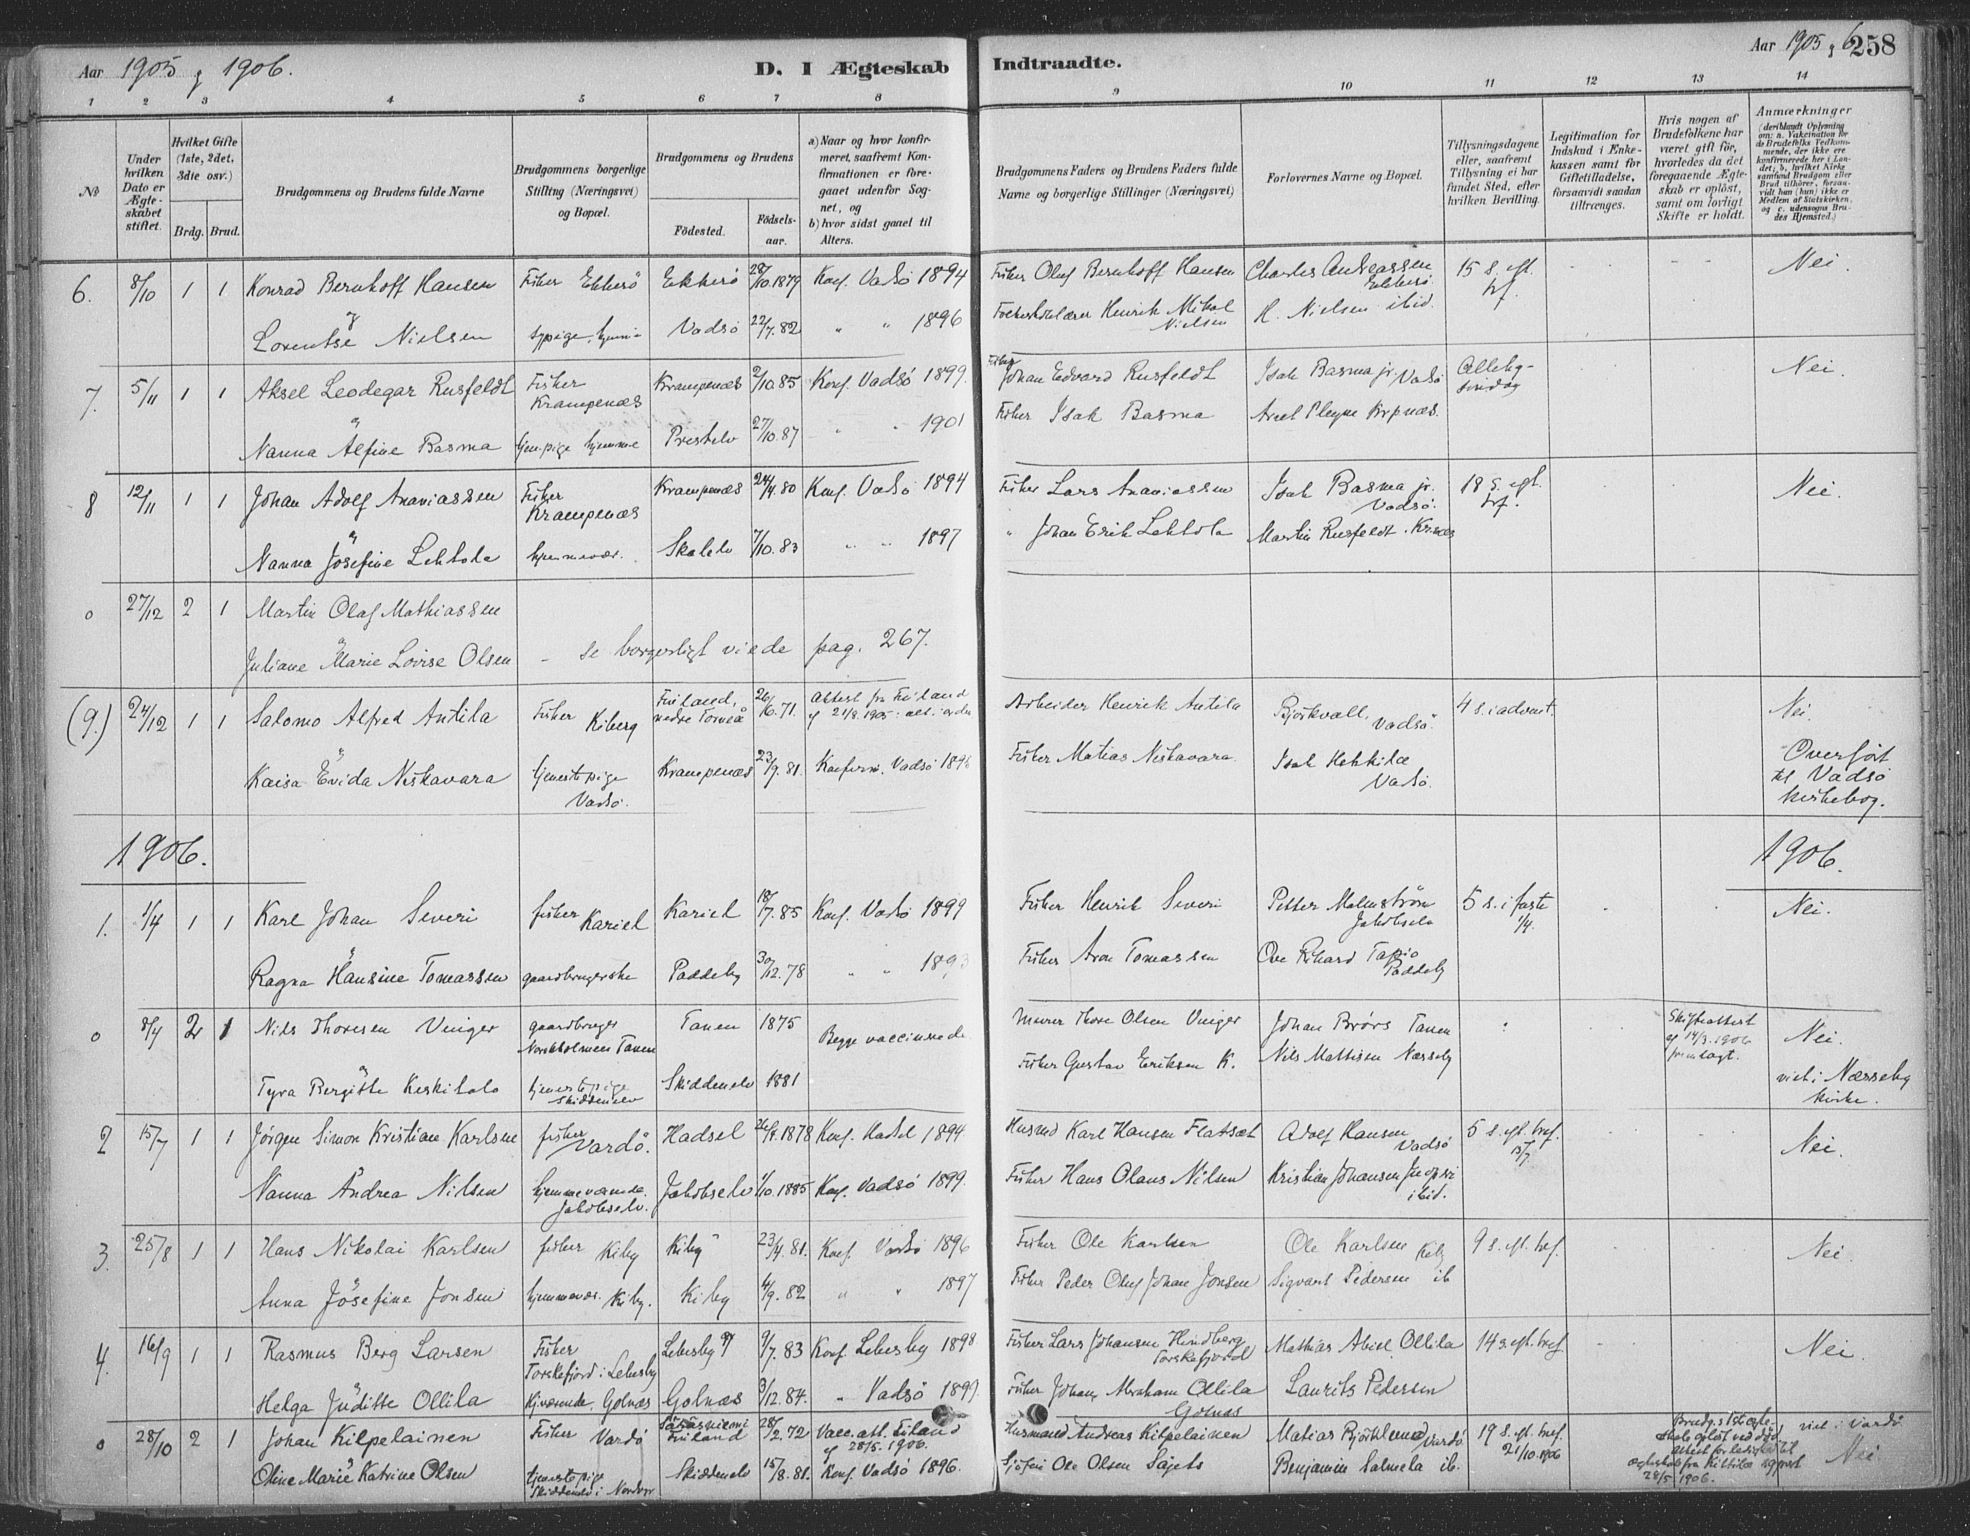 Aar 1905 og 1906.
D. I Ægteskab
Indtraadte.
Aar 1905 og 6
258
1 2 3 4 5 6 7 8
9 10 11 12 13 14
No
Under hvilken Dato er Ægteskabet stiftet.
Hvilket Gifte (1ste, 2det, 3die osv.)
Brdg. Brud.
Brudgommens og Brudens fulde Navne
Brudgommens borgerlige Stilling (Næringsvei) og Bopæl.
Brudgommens og Brudens
Födested.
Födselsaar.
a) Naar og hvor konfirmeret, saafremt Konfirmationen er foregaaet udenfor Sognet, og
b) hvor sidst gaaet til Alters.
Brudgommens Faders og Brudens Faders fulde Navne og borgerlige Stillinger (Næringsvei)
Forlovernes Navne og Bopæl.
Tillysningsdagene eller, saafremt Tillysning ei har fundet Sted, efter hvilken Bevilling.
Legitimation for Indskud i Enkekassen samt for Giftetilladelse, forsaavidt saadan tiltrænges.
Hvis nogen af Brudefolkene har været gift før, hvorledes da det foregaaende Ægteskab er oplöst, samt om lovligt Skifte er holdt.
Anmærkninger
(deriblandt Oplysning om: a. Vakcination for de Brudefolks Vedkommende, der ikke ere konfirmerede her i Landet; b. hvilket Kirkesamfund Brudgom eller Brud tilhører, forsaavidt han (hun) ikke er Medlem af Statskirken, og c. udensogns Brudes Hjemsted.)
6. 8/10 1 1 Konrad Bernhoff Hansen Fisker Ekkerö Ekkerö 28/10.1879 Konf. Vadsö 1894 Fisker Oluf Bernhoff Hansen Charles Andreassen Ekkerö 15 s. eft. trf. Nei
og
Lorentse Nielsen sypige, hjemme Vadsö 22/7.82 " " 1896 Folkeskolelærer Henrik Mikal Nielsen H. Nielsen ibid.
7. 5/11 1 1 Aksel Leodegar Rusfeldt Fisker Krampenæs Krampenæs 2/10.85 Konf. Vadsö 1899. Fisker Johan Edvard Rusfeldt Isak Basma jr. Vadsö Allehg-söndag Nei.
Nanna Alfine Basma tjen.pige hjemme Prestelv 27/10.87 " " 1901 Fisker Isak Basma
8 12/11 1 1 Johan Adolf Ananiassen Fisker Krampenæs Krampenæs 24/4.80 Konf. Vadsö 1894 Fisker Lars Ananiassen Isak Basma jr. Vadsö. 18 s. eft. trf. Nei.
Nanna Josefine Lehtola hjemmevær. Skalelv 7/10.83 " " 1897 " Johan Erik Lehtola Martin Rusfeldt. Krnæs
0 27/12 2 1 Martin Olaf Mathiassen
Juliane Marie Lovise Olsen - se borgerligt viede pag. 267.
(9.) 24/12 1 1 Salomo Alfred Antila Fisker Kiberg Finland, nedre Torneå 26/6.71. attest fra Finland af 21/8.1905: Arbeider Henrik Antila Björkvall, Vadsö. 4 s. i advent. Nei.
Kaisa Evida Niskavara tjenestepige Vadsö. Krampenæs 23/9.81. Konfirm. Vadsö 1896 Fisker Matias Niskavara Isak Heikkilæ Vadsö. Overført til Vadsö kirkebog.
1906.
1906.
1. 1/4 1 1 Karl Johan Severi fisker Kariel Kariel 18/7.85 Konf. Vadsö 1899 Fisker Henrik Severi Petter Malmström Jakobselv 5 s. i faste 1/4. Nei.
Ragna Hansine Tomassen gaardbrugerske Paddeby 30/12.78 " " 1893 Fisker Aron Tomassen Ove Rikard Tapio Paddeby
0 8/7 2 1 Nils Thoresen Vinger gaardbruger Norskholmen Tanen Tanen 1875 Begge vaccinerede Murer Thore Olsen Vinger Johan Brørs Tanen Skifteattest af 14/3.1906 fremlagt. Nei.
Tyra Bergitte Keskitalo tjenestepige Skiddenelv Skiddenelv 1881 Fisker Gustav Eriksen K. Nils Mattisen Næsseby viet i Næsseby kirke.
2 15/7 1 1 Jørgen Simon Kristian Karlsen fisker Vardö. Hadsel 26/8.1878 Konf. Hadsel 1894 Husmd Karl Hansen Flatsæt Adolf Hansen Vadsö 5 s. eft. tref. 15/7. Nei.
Nanna Andrea Nilsen hjemmeværende. Jakobselv. Jakobselv 1/10.1885 Konf. Vadsö 1899. Fisker Hans Olaus Nilsen Kristian Johansen ibid.
3. 25/8 1 1 Hans Nikolai Karlsen fisker Kiby Kiby 23/4.81. Konf. Vadsö 1896 Fisker Ole Karlsen Ole Karlsen Kiby 9 s. eft. tref. Nei.
Anna Josefine Jonsen hjemmevær. Kiby. Kiby 4/9.82 " " 1897 Fisker Peder Oluf Johan Jonsen Sigvart Pedersen ib
4. 16/9 1 1 Rasmus Berg Larsen Fisker Torskefjord i Lebesby Lebesby 9/7.83 Konf. Lebesby 1898 Fisker Lars Johansen Torskefjord Mathias Abiel Ollila 14 s. eft. tref Nei.
Helga Juditte Ollila Hj.værende, Golnæs Golnæs 3/12.84. " Vadsö 1899. Fisker Johan Abraham Ollila Golnæs Laurits Pedersen
0 28/10 2 1 Johan Kilpelainen Fisker Vardö Finland 28/2.72 Vacc.att. Finland af 28/5.1906. Husmand Andreas Kilpelainen Matias Björklund Vardö 19 s. eft. tref. 21/10.1906 Brudg.s 1st ægteskab opløst ved död, attest for ledighed til ægteskab fra Kittilæ 28/5.1906. viet i Vardö. Nei
Oline Marie Katrine Olsen tjenestepige Skiddenelv i Skiddenelv 15/8.81. Konf. Vadsö 1896. Ole Olsen Benjamin Salmela ib.